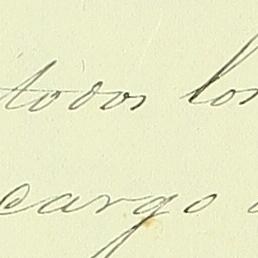 todos los
cargo